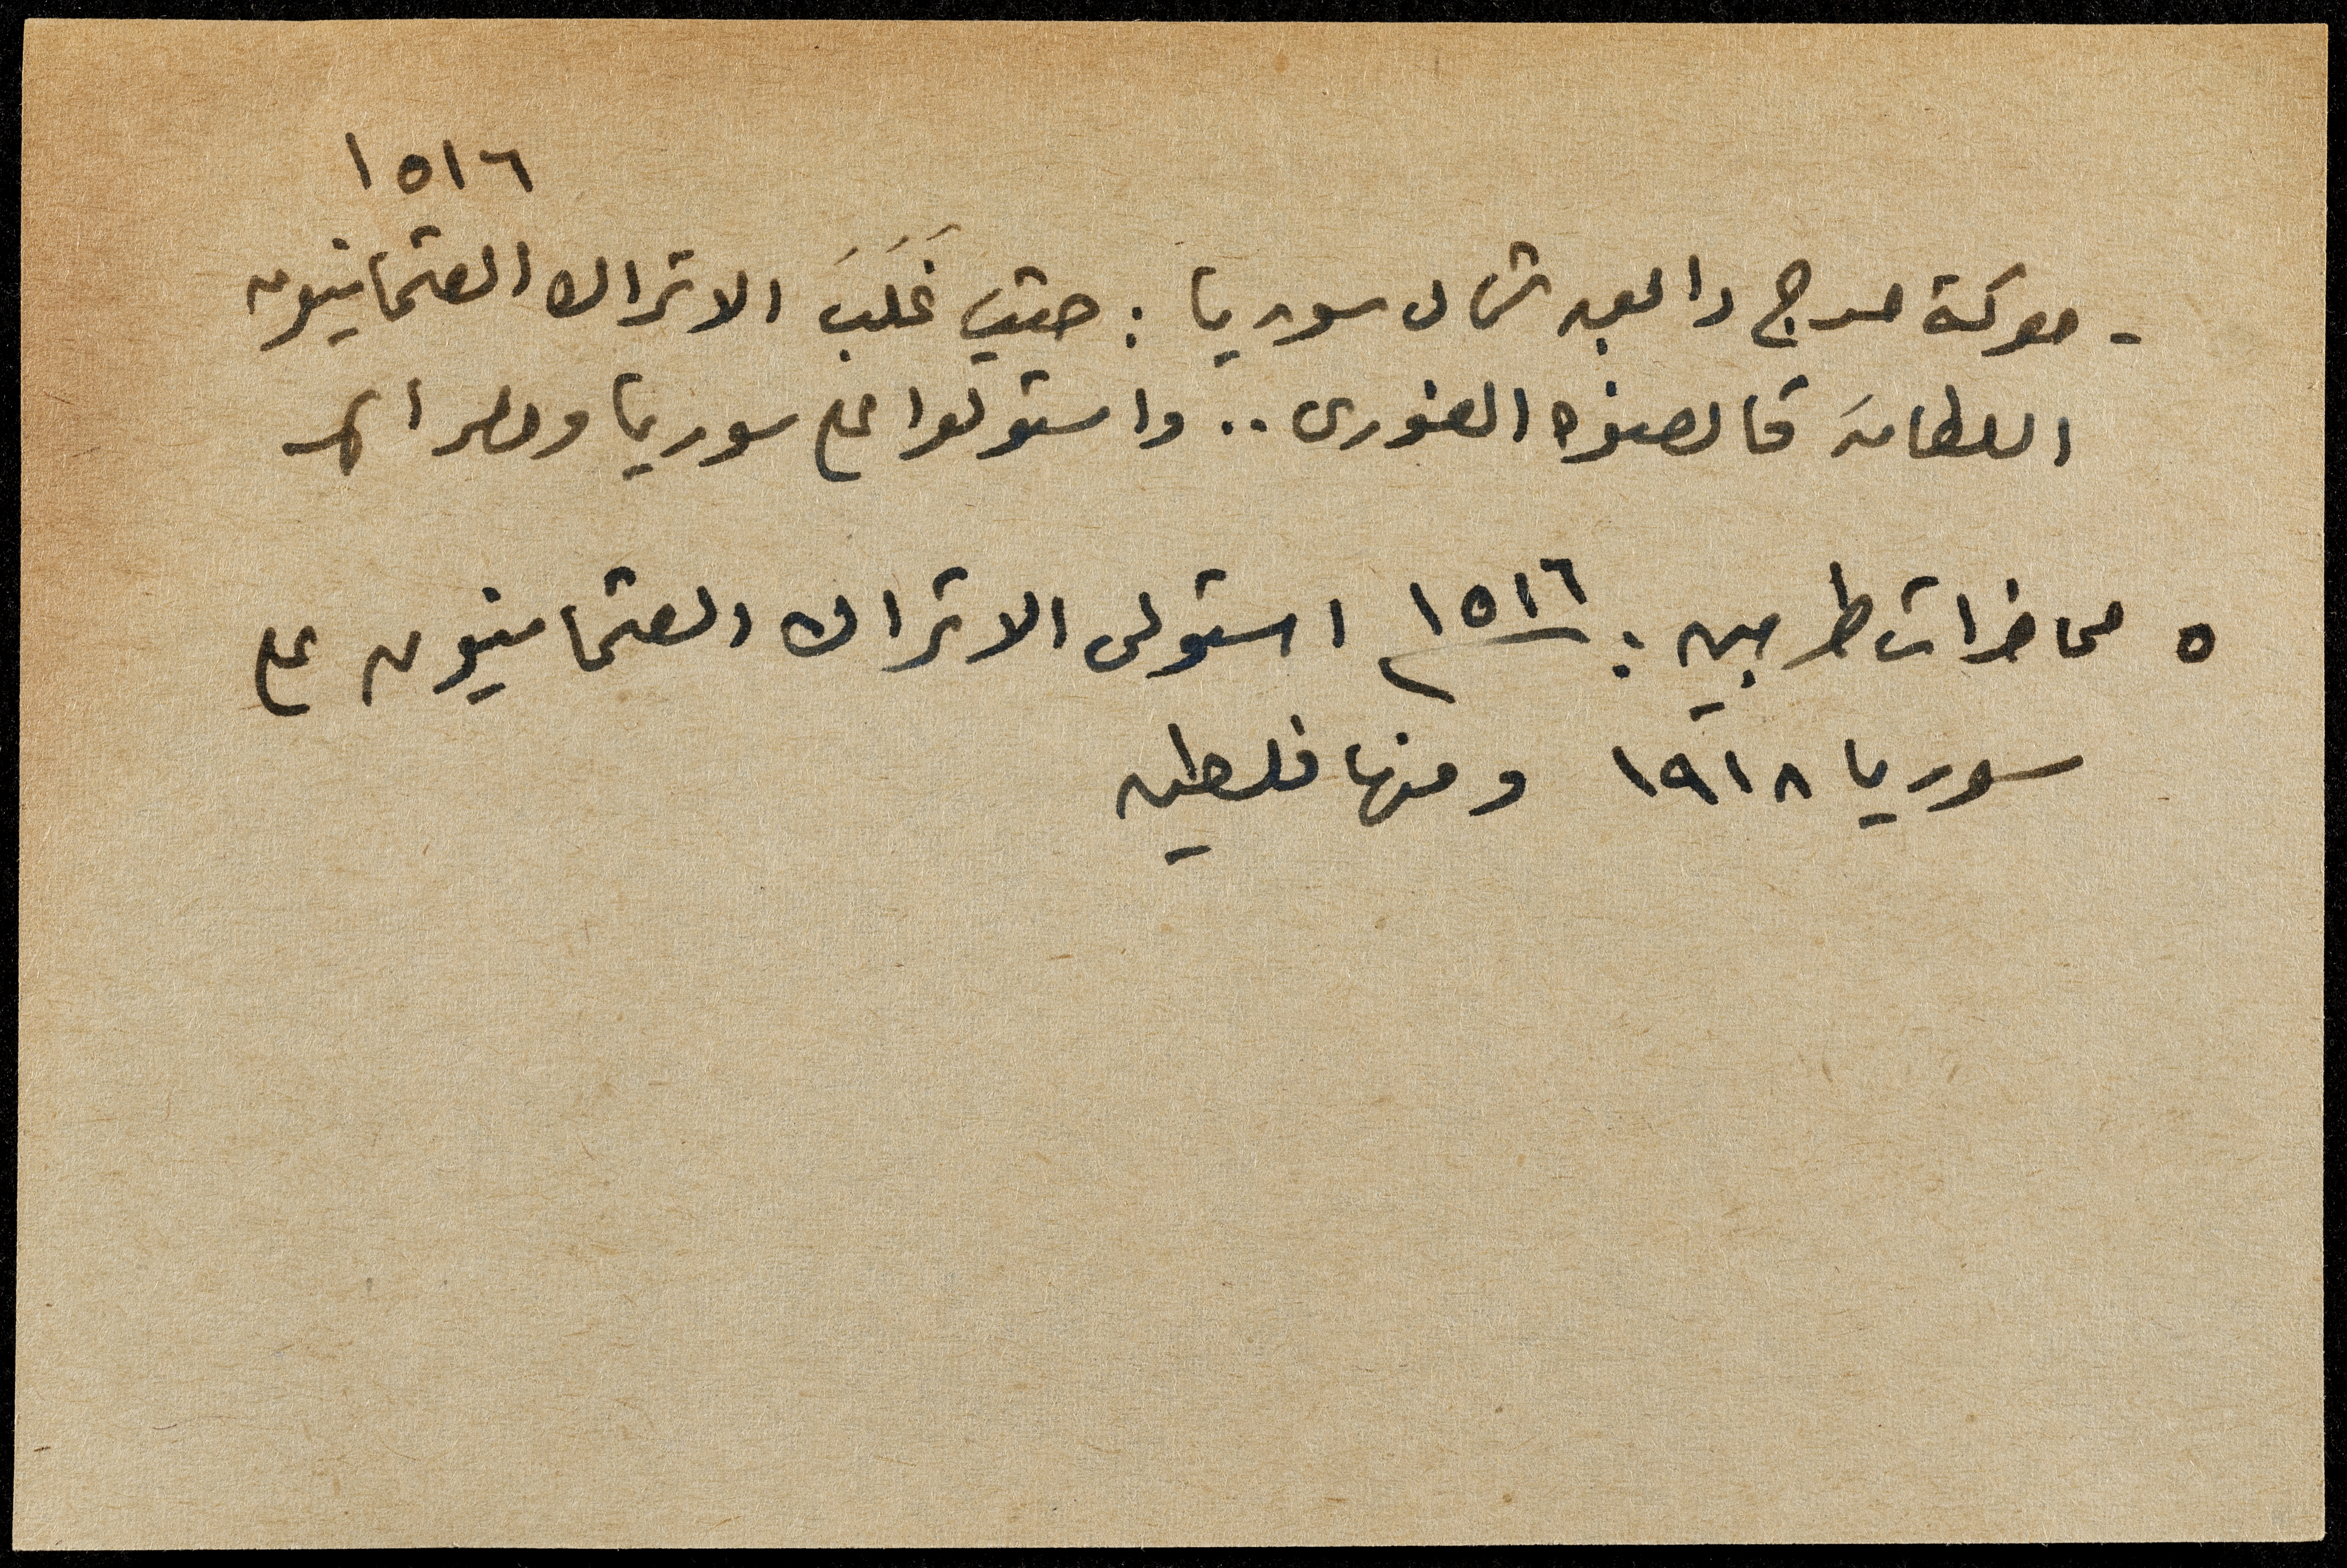 ١٥١٦
- معركة مرج دابق شمال سوريا : حيث غَلَبَ الاتراك العثمانيون
السلطان قانصوه الغوري .. واستولوا على سوريا ومصر
٥ محاضرات طربين : ١٥١٦ م استولى الاتراك العثمانيون على
سوريا ١٩١٨ ومنها فلسطين